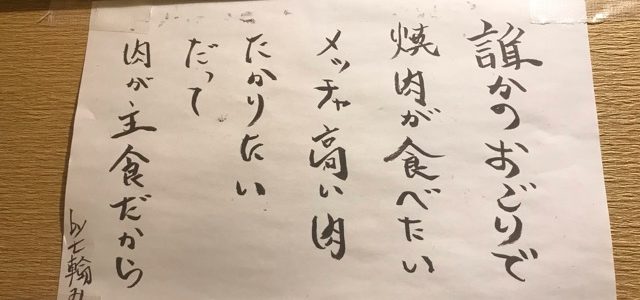 誰かのおごりで
焼肉が食べたい
メッチャ高い肉
たかりたい
だって
肉が主食だから
by七輪み